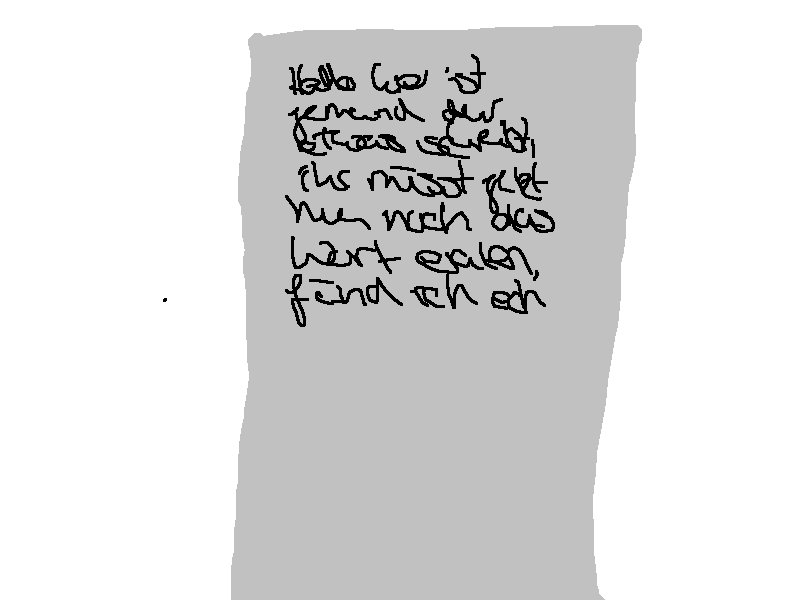 Hallo hier ist
jemand der
etwas schreibt,
ihr müsst jetzt
nur noch das
Wort eralen,
fänd ich ech